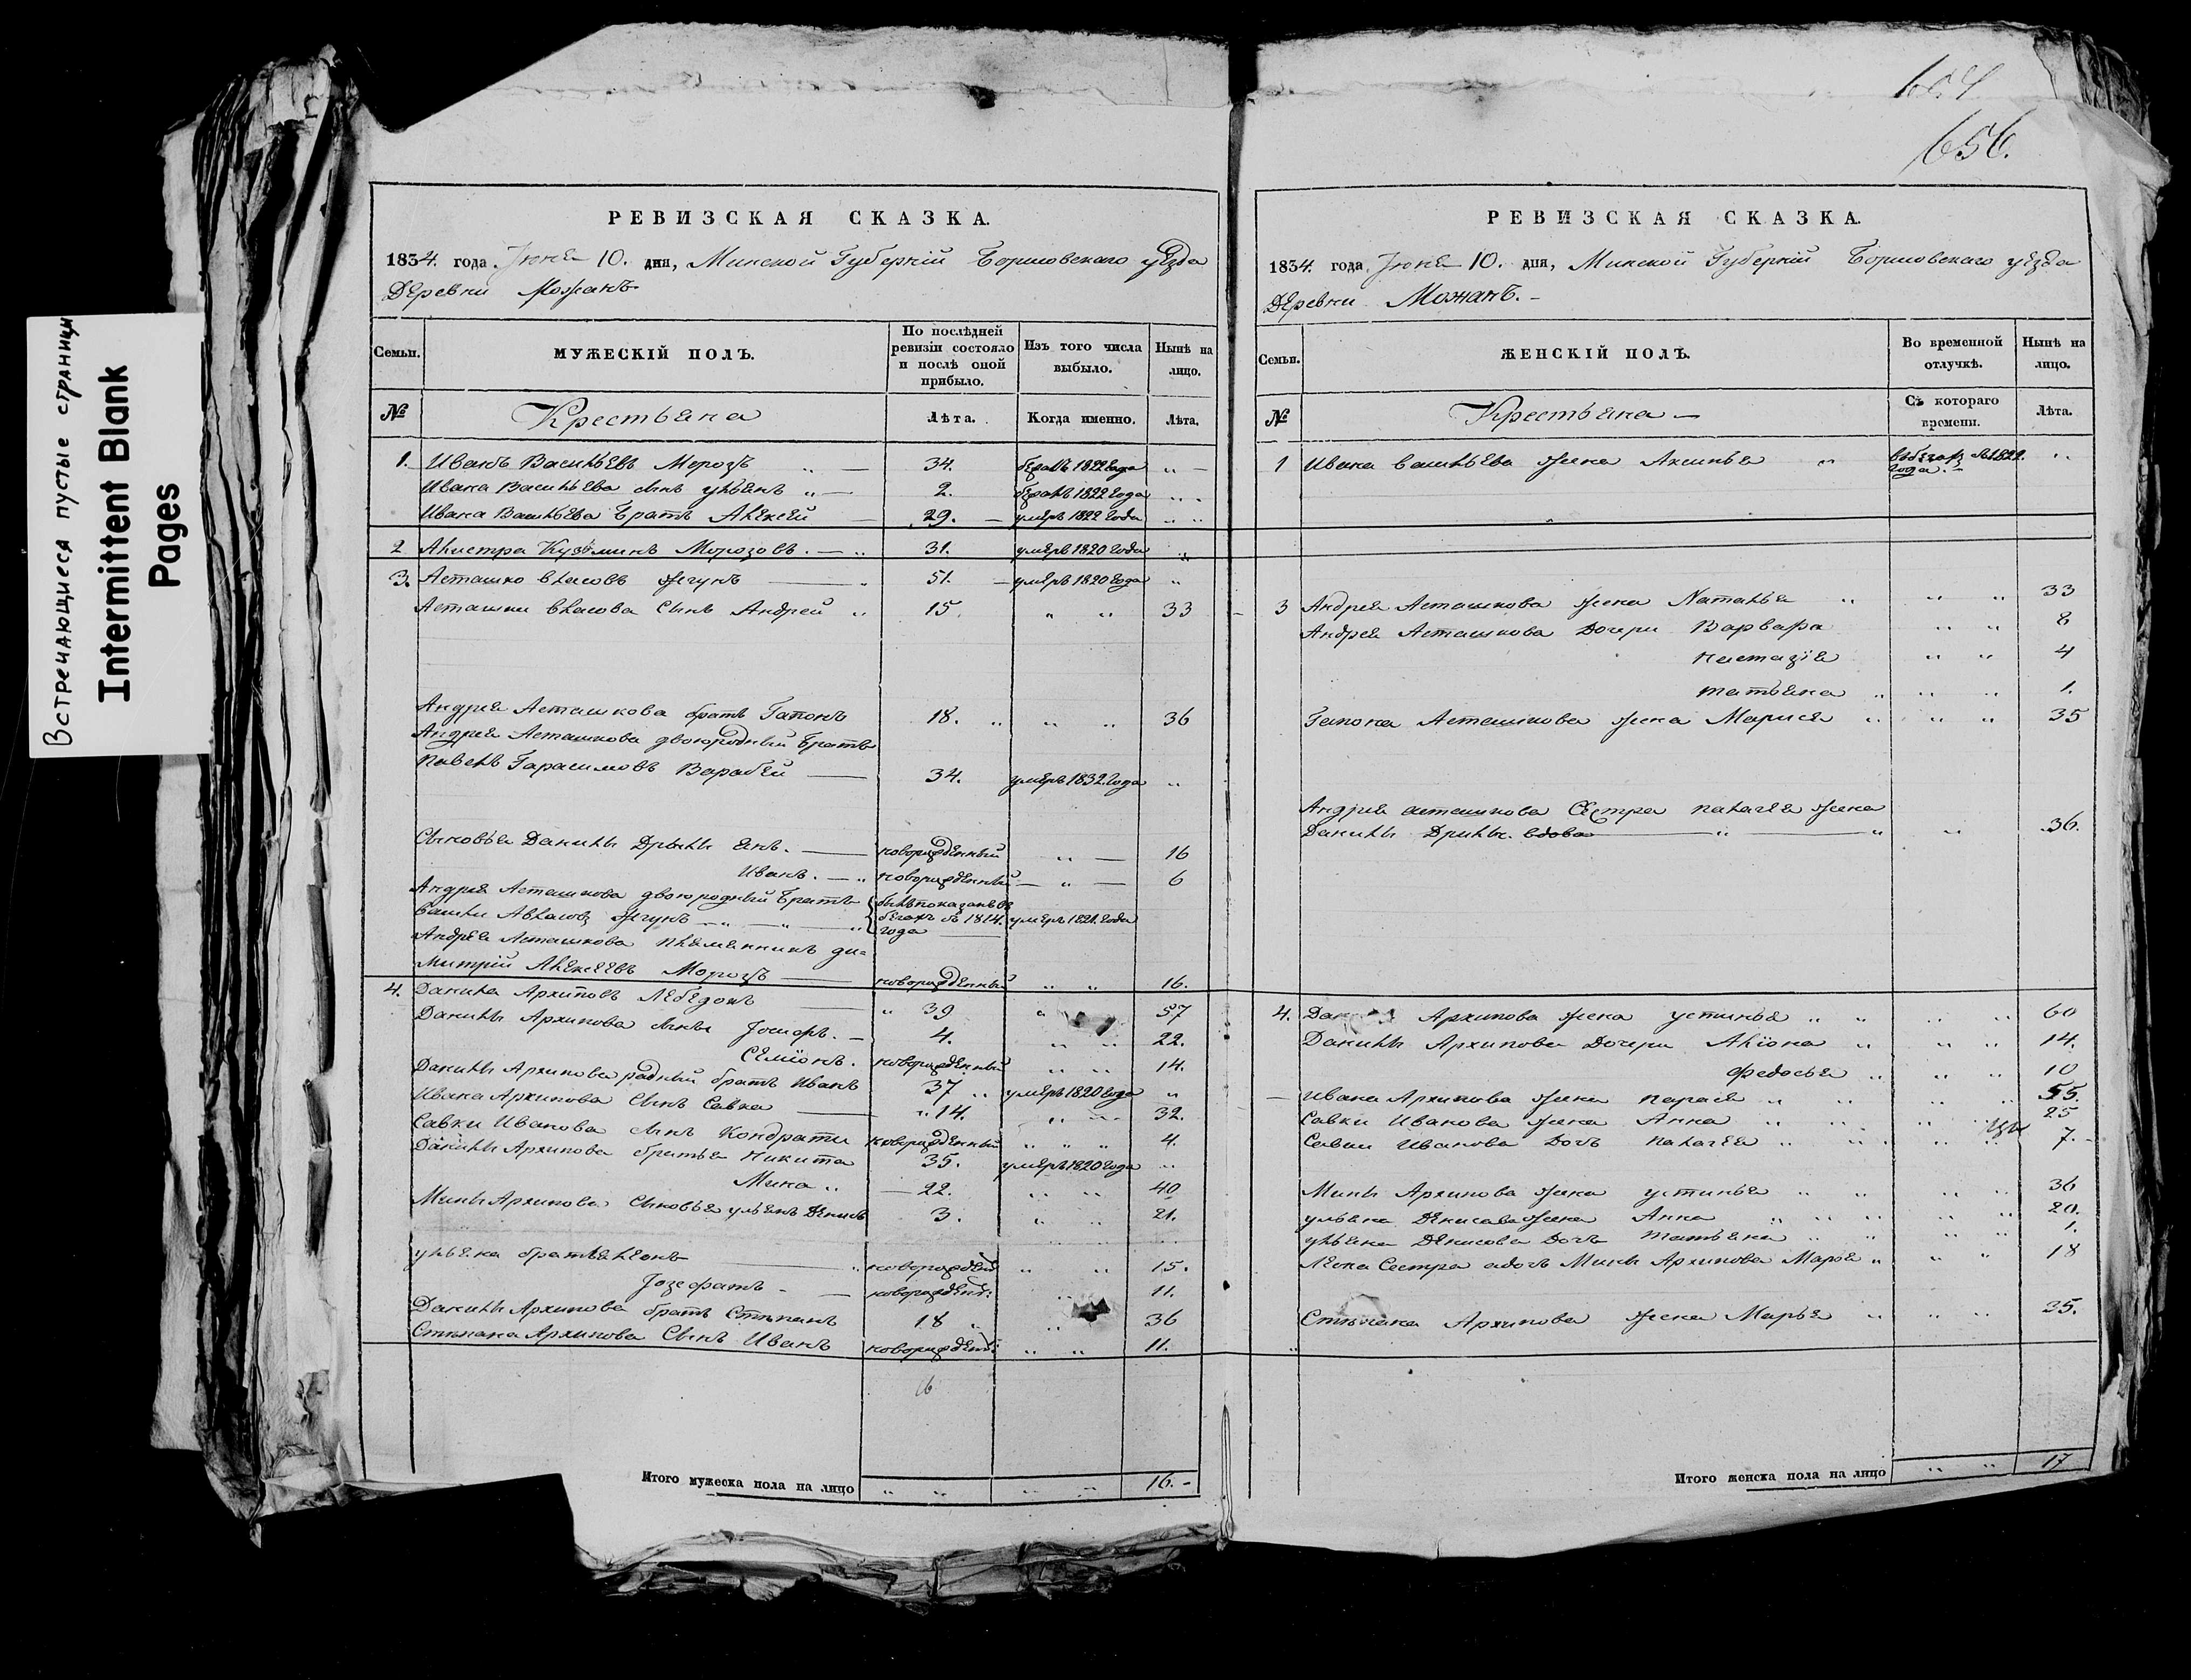 Встречающиеся пустые страницы
Intermittent Blank
Pages
РЕВИЗСКАЯ СКАЗКА.
1834. года Июня 10. дня, Минской Губерніи Борисовскаго уезда
Деревни Можанъ
Семьи. МУЖЕСКІЙ ПОЛЪ. По послѣдней ревизіи состояло и послѣ оной прибыло. Изъ того числа выбыло. Нынѣ на лицо.
№ Крестьяна Лѣта. Когда именно. Лѣта.
1. Иванъ Васильевъ Морозъ „ — 34. бежалъ 1822 года „ —
Ивана Васильева сынъ ульянъ „ — 2. бежалъ 1822 года „ „
Ивана Васильева Братъ Алексей — 29. — умеръ 1822 года „ „
2 Алистра Кузьминъ Морозовъ. — „ 31. умеръ 1820 года „
3. Асташко власовъ жгунъ — „ 51. — умеръ 1820 года „
Асташки власова Сынъ Андрей „ 15. „ „ 33
Андрея Асташкова братъ Гапонъ 18. „ „ „ 36
Андрея Асташкова двоюродный Братъ
Павелъ Гарасимовъ Варабей — 34. умеръ 1832. года „
Сыновья Данилы Дрылы янъ. — новорожденный „ — 16
Иванъ. — „ новорожденный — „ — 6
Андрея Асташкова двоюродный Братъ былъ показанъ въ
жгунъ — „ — „ — „ бегахъ съ 1814. умеръ 1821. года
года
Андрея Асташкова племянникъ ди=
митрій Алексеевъ Морозъ — новорожденный „ „ 16.
4. Данила Архиповъ Лебедокъ — „ 39 „ 57
Данилы Архипова сыны Іосифъ. — 4. „ „ 22.
Семіонъ. новорожденный „ „ 14.
Данилы Архипова родный братъ Иванъ 37 „ умеръ 1820 года „
Ивана Архипова Сынъ Савка — „ 14. „ „ 32.
Савки Иванова сынъ Кондрати новорожденный „ „ „ 4.
Данилы Архипова братья Никита 35. умеръ 1820 года „
Мина „ — 22. „ „ 40
Мины Архипова Сыновья ульянъ Денисъ 3. „ „ 21.
ульяна братья Леонъ — „ новорожден „ „ 15.
Іозефатъ — — новорожден: „ 11.
Данилы Архипова братъ Степанъ 18 „ „ 36
Степана Архипова Сынъ Иванъ новорожден: „ „ 11.
16
Итого мужеска пола на лицо „ „ „ „ 16. -
654
656.
РЕВИЗСКАЯ СКАЗКА.
1834. года Июня 10. дня, Минской Губерніи Борисовскаго уезда
Деревни Можанъ. —
Семьи. ЖЕНСКІЙ ПОЛЪ. Во временной отлучкѣ. Нынѣ на лицо.
№ Крестьяна — Съ котораго времени. Лѣта.
1 Ивана васильева жена Аксинья „ въ бегах съ 1822. „
года. —
3 Андрея Асташкова жена Наталья „ „ „ 33
Андрея Асташкова Дочери Варвара „ „ 8
Настазія „ „ 4
татьяна „ „ „ 1.
Гапона Асташкова жена Марися „ „ „ 35
Андрея асташкова Сестра палагея жена
Данилы Дрилы. вдова — „ — „ „ 36.
4. Архипова жена устинья „ „ „ „ 60
Данилы Архипова Дочери Аліона „ „ „ 14.
федосья „ „ „ 10
Ивана Архипова жена парася „ „ „ „ 55.
Савки Иванова жена Анна „ „ „ 25
Савки Иванова Дочъ палагея „ „ „ „ 7. -
Мины Архипова жена устинья „ „ „ „ 36
ульяна Денисава жена Анна „ „ „ „ „ 20.
ульяна Денисова Дочъ татьяна „ „ „ „ 1.
Леона Сестра адочъ Мины Архипова Марья „ „ „ 18
Степана Архипова жена Марья „ „ „ 25.
Итого женска пола на лицо „ „ 17